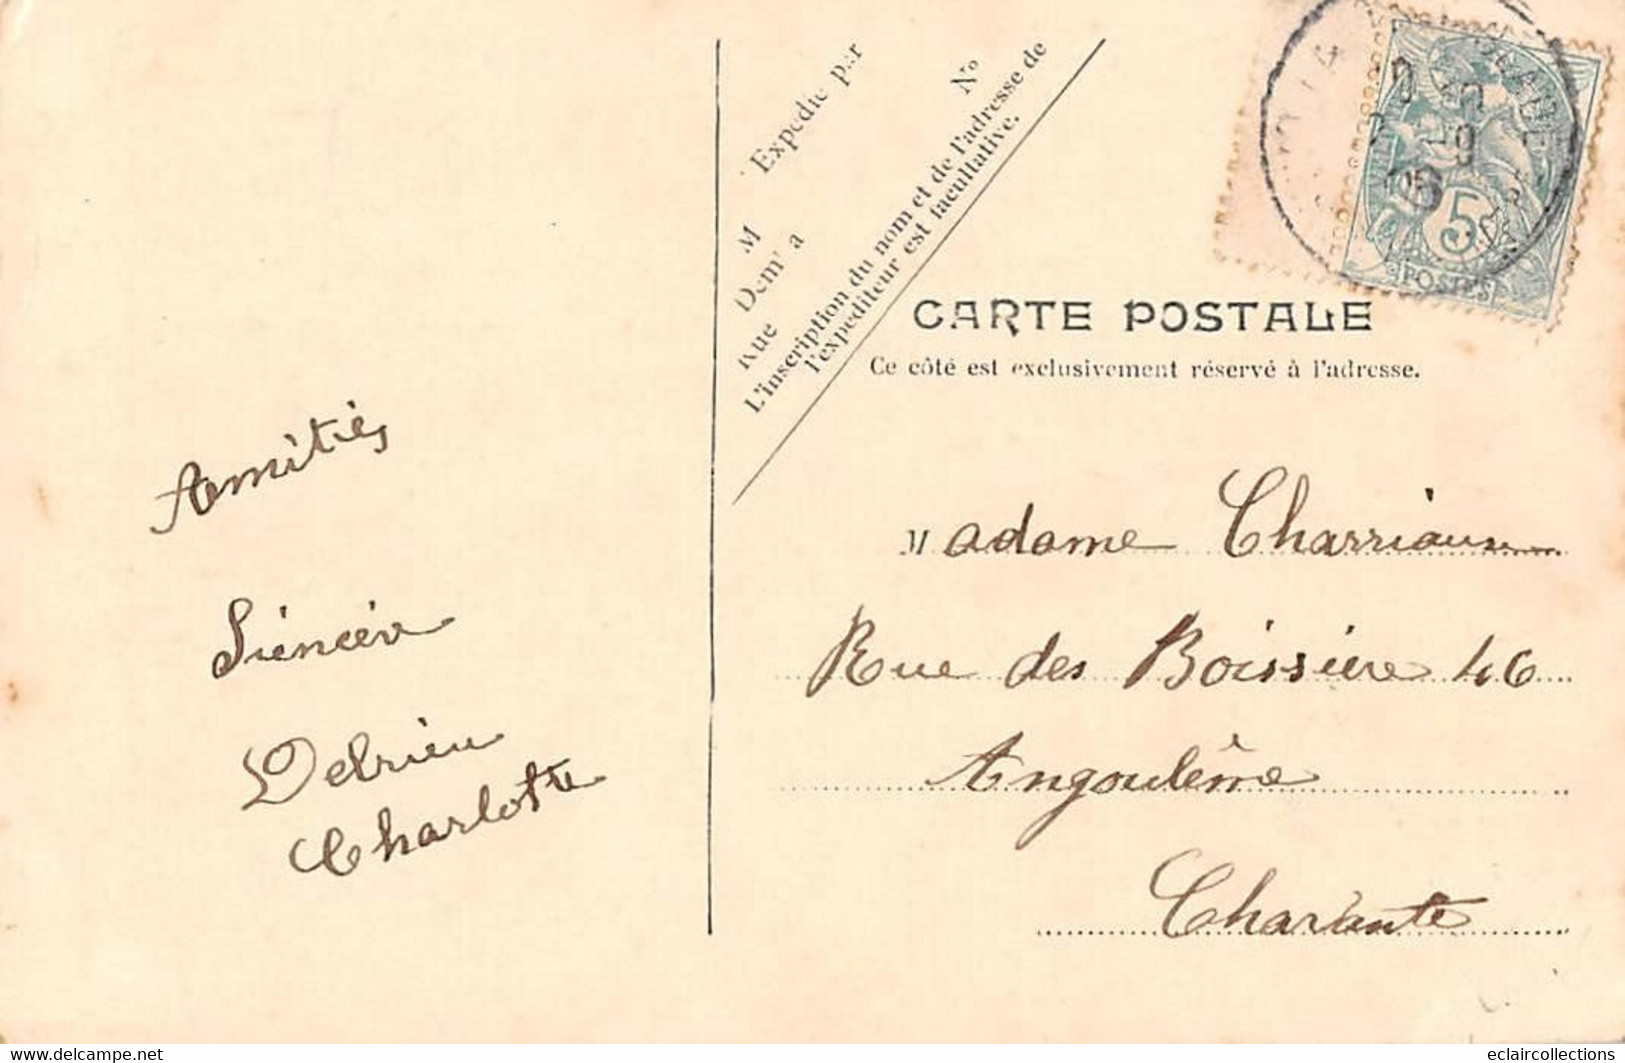 Expedie par
M
Dem' a
Rue
No
L'inscription du nom et de l'adresse de
l'expediteur est facultative.
CARTE POSTALE
Ce côté est exclusivement réservé à l'adresse.
5
POSTES
Amitiés
Siencèr
Delrieu
Charlotte
Madame Charriaux
Rue des Boissière 46
Angoulême
Charante
www.delcampe.net
eclaircollections